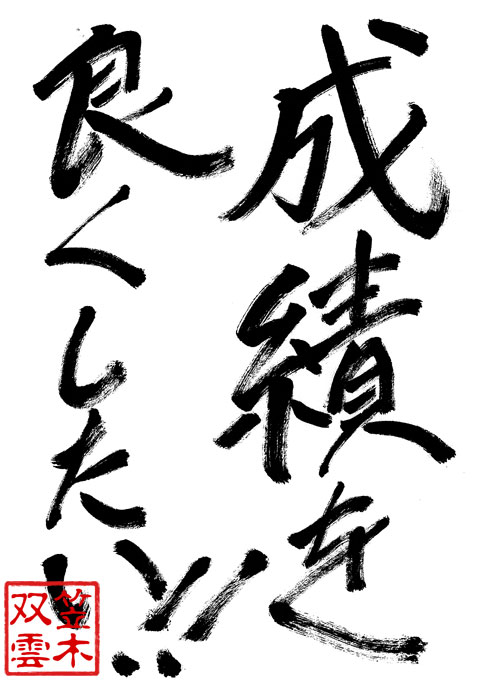 成績を
良くしたい!!
笠木
双雲